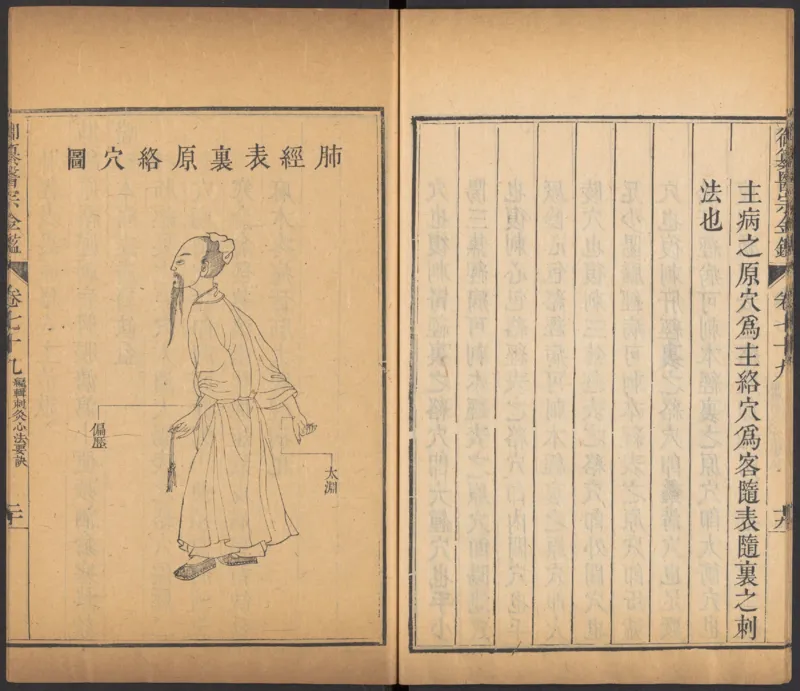 御纂醫宗金鑑
卷七十九
十九
主病之原穴爲主絡穴爲客隨表隨裏之刺
法也
肺經表裏原絡穴圖
偏歷
太淵
御纂醫宗金鑑
卷七十九
編輯刺灸心法要訣
二十